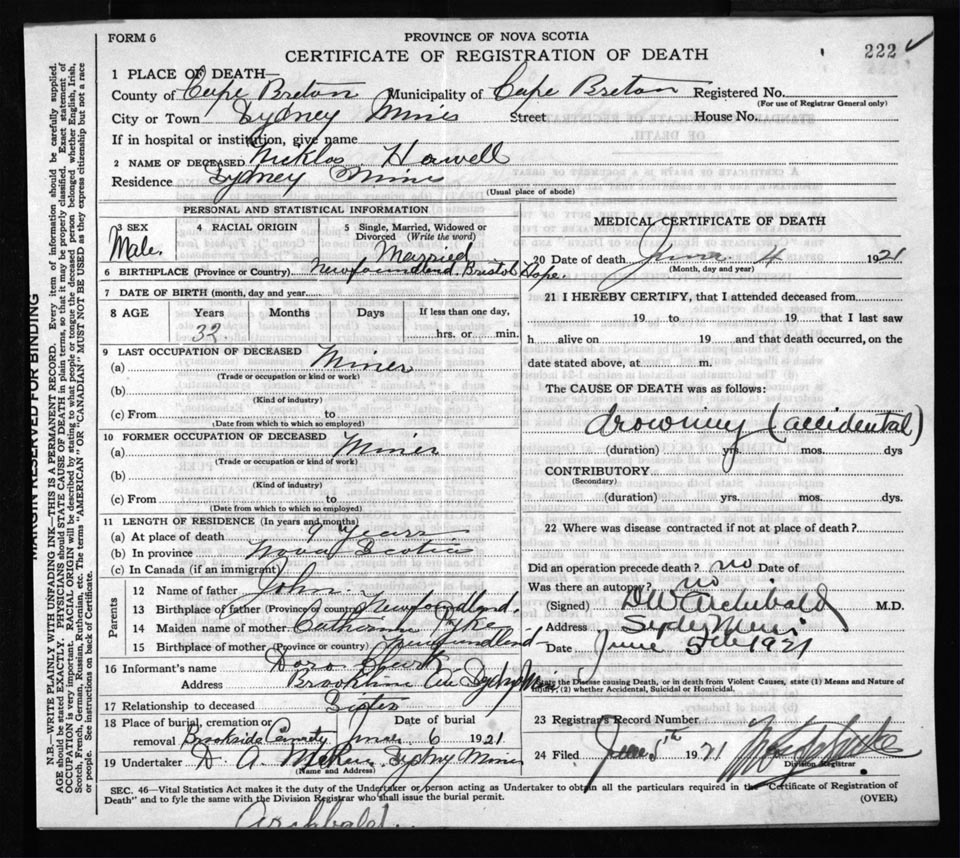 FORM 6
PROVINCE OF NOVA SCOTIA
CERTIFICATE OF REGISTRATION OF DEATH
222
1 PLACE OF DEATH—
County of Cape Breton Municipality of Cape Breton Registered No.
(For use of Registrar General only)
City or Town Sydney Mines Street House No.
If in hospital or institution, give name
2 NAME OF DECEASED Nicklos Howell
Residence Sydney Mines
(Usual place of abode)
PERSONAL AND STATISTICAL INFORMATION
3 SEX Male
4 RACIAL ORIGIN
5 Single, Married, Widowed or Divorced (Write the word) Married
6 BIRTHPLACE (Province or Country) Newfoundland. Bristol Hope.
7 DATE OF BIRTH (month, day and year)
8 AGE Years Months Days If less than one day,
32 hrs. or min.
9 LAST OCCUPATION OF DECEASED
(a) Miner
(Trade or occupation or kind or work)
(b)
(Kind of industry)
(c) From to
(Date from which to which so employed)
10 FORMER OCCUPATION OF DECEASED
(a) Miner
(Trade or occupation or kind of work)
(b)
(Kind of industry)
(c) From to
(Date from which to which so employed)
11 LENGTH OF RESIDENCE (In years and months)
(a) At place of death 9 years
(b) In province Nova Scotia
(c) In Canada (if an immigrant)
Parents
12 Name of father John
13 Birthplace of father (Province or country) Newfoundland.
14 Maiden name of mother Catherine
15 Birthplace of mother (Province or country) Newfoundland
16 Informant's name Dora
Address Brookline Ave Sydney Mines
17 Relationship to deceased Sister
18 Place of burial, cremation or removal Brookside Date of burial June 6 1921
19 Undertaker D. A. Sydney Mines
(Name and Address)
MEDICAL CERTIFICATE OF DEATH
20 Date of death June 4 1921
(Month, day and year)
21 I HEREBY CERTIFY, that I attended deceased from
19 to 19 that I last saw
h alive on 19 and that death occurred, on the
date stated above, at m.
The CAUSE OF DEATH was as follows:
drowning (accidental)
(duration) yrs. mos. dys
CONTRIBUTORY
(Secondary)
(duration) yrs. mos. dys.
22 Where was disease contracted if not at place of death?
Did an operation precede death? no Date of
Was there an autopsy? no
(Signed) D W Archibald M.D.
Address Sydney Mines
Date June 5th 1921
State the Disease causing Death, or in death from Violent Causes, state (1) Means and Nature of
Injury, (2) whether Accidental, Suicidal or Homicidal.
23 Registrar's Record Number
24 Filed June 5th 1921
Division Registrar
SEC. 46—Vital Statistics Act makes it the duty of the Undertaker or person acting as Undertaker to obtain all the particulars required in the Certificate of Registration of
Death" and to fyle the same with the Division Registrar who shall issue the burial permit.
(OVER)
Archibald.
MARGIN RESERVED FOR BINDING
N.B.—WRITE PLAINLY WITH UNFADING INK—THIS IS A PERMANENT RECORD. Every item of information should be carefully supplied.
AGE should be stated EXACTLY. PHYSICIANS should STATE CAUSE OF DEATH in plain terms, so that it may be properly classified. Exact statement of
OCCUPATION is very important. RACIAL ORIGIN will be described by stating to what people or tongue the deceased person belonged whether English, Irish,
Scotch, French, German, Russian, Ruthenian, etc. The terms "AMERICAN" OR "CANADIAN" MUST NOT BE USED as they express citizenship but not a race
or people. See instructions on back of Certificate.